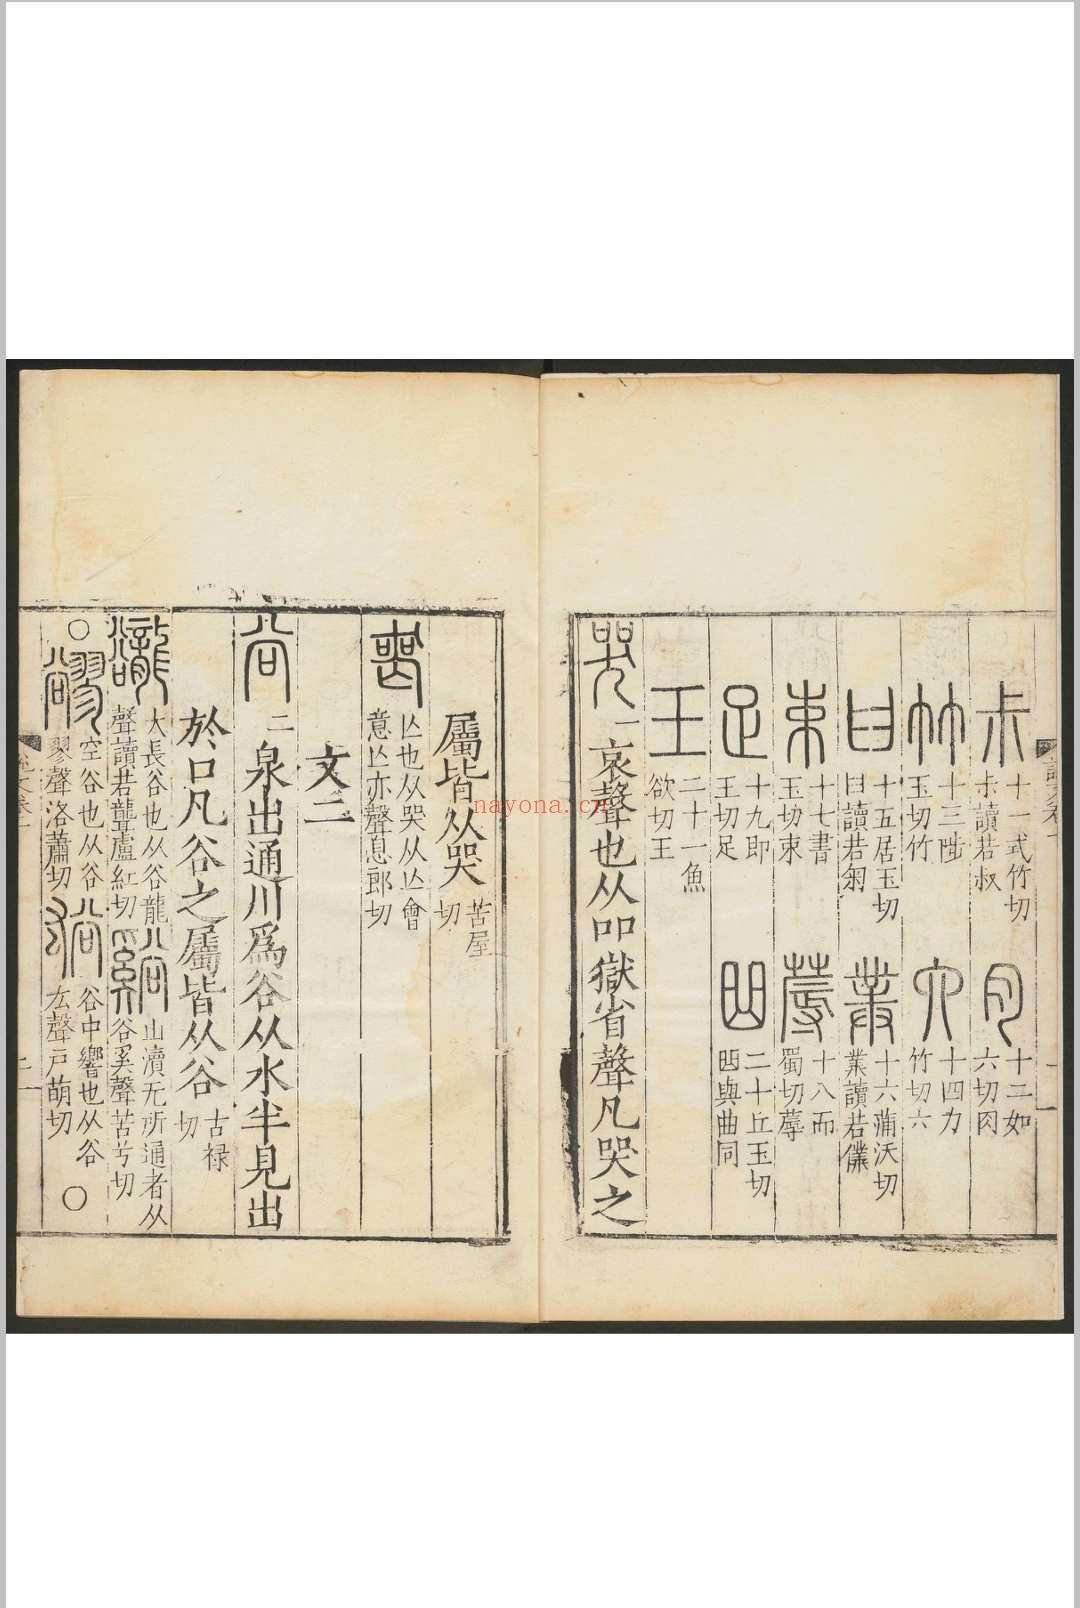 尗 十一式竹切尗讀若叔
肉 十二如六切肉
竹 十三陟玉切竹
六 十四力竹切六
𦥑 十五居玉切𦥑讀若匊
菐 十六蒲沃切菐讀若僕
束 十七書玉切束
蓐 十八而蜀切蓐
足 十九即玉切足
𠚖 二十丘玉切𠚖與曲同
王 二十一魚欲切王
哭 一哀聲也从吅獄省聲凡哭之
屬皆从哭 苦屋切
喪 亾也从哭从亾會意亾亦聲息郎切
文二
谷 二泉出通川爲谷从水半見出
於口凡谷之屬皆从谷 古禄切
大長谷也从谷龍聲讀若聾盧紅切
山瀆无所通者从谷奚聲苦兮切
○ 空谷也从谷翏聲洛蕭切
谷中響也从谷厷聲戸萌切 ○
nayona.cn